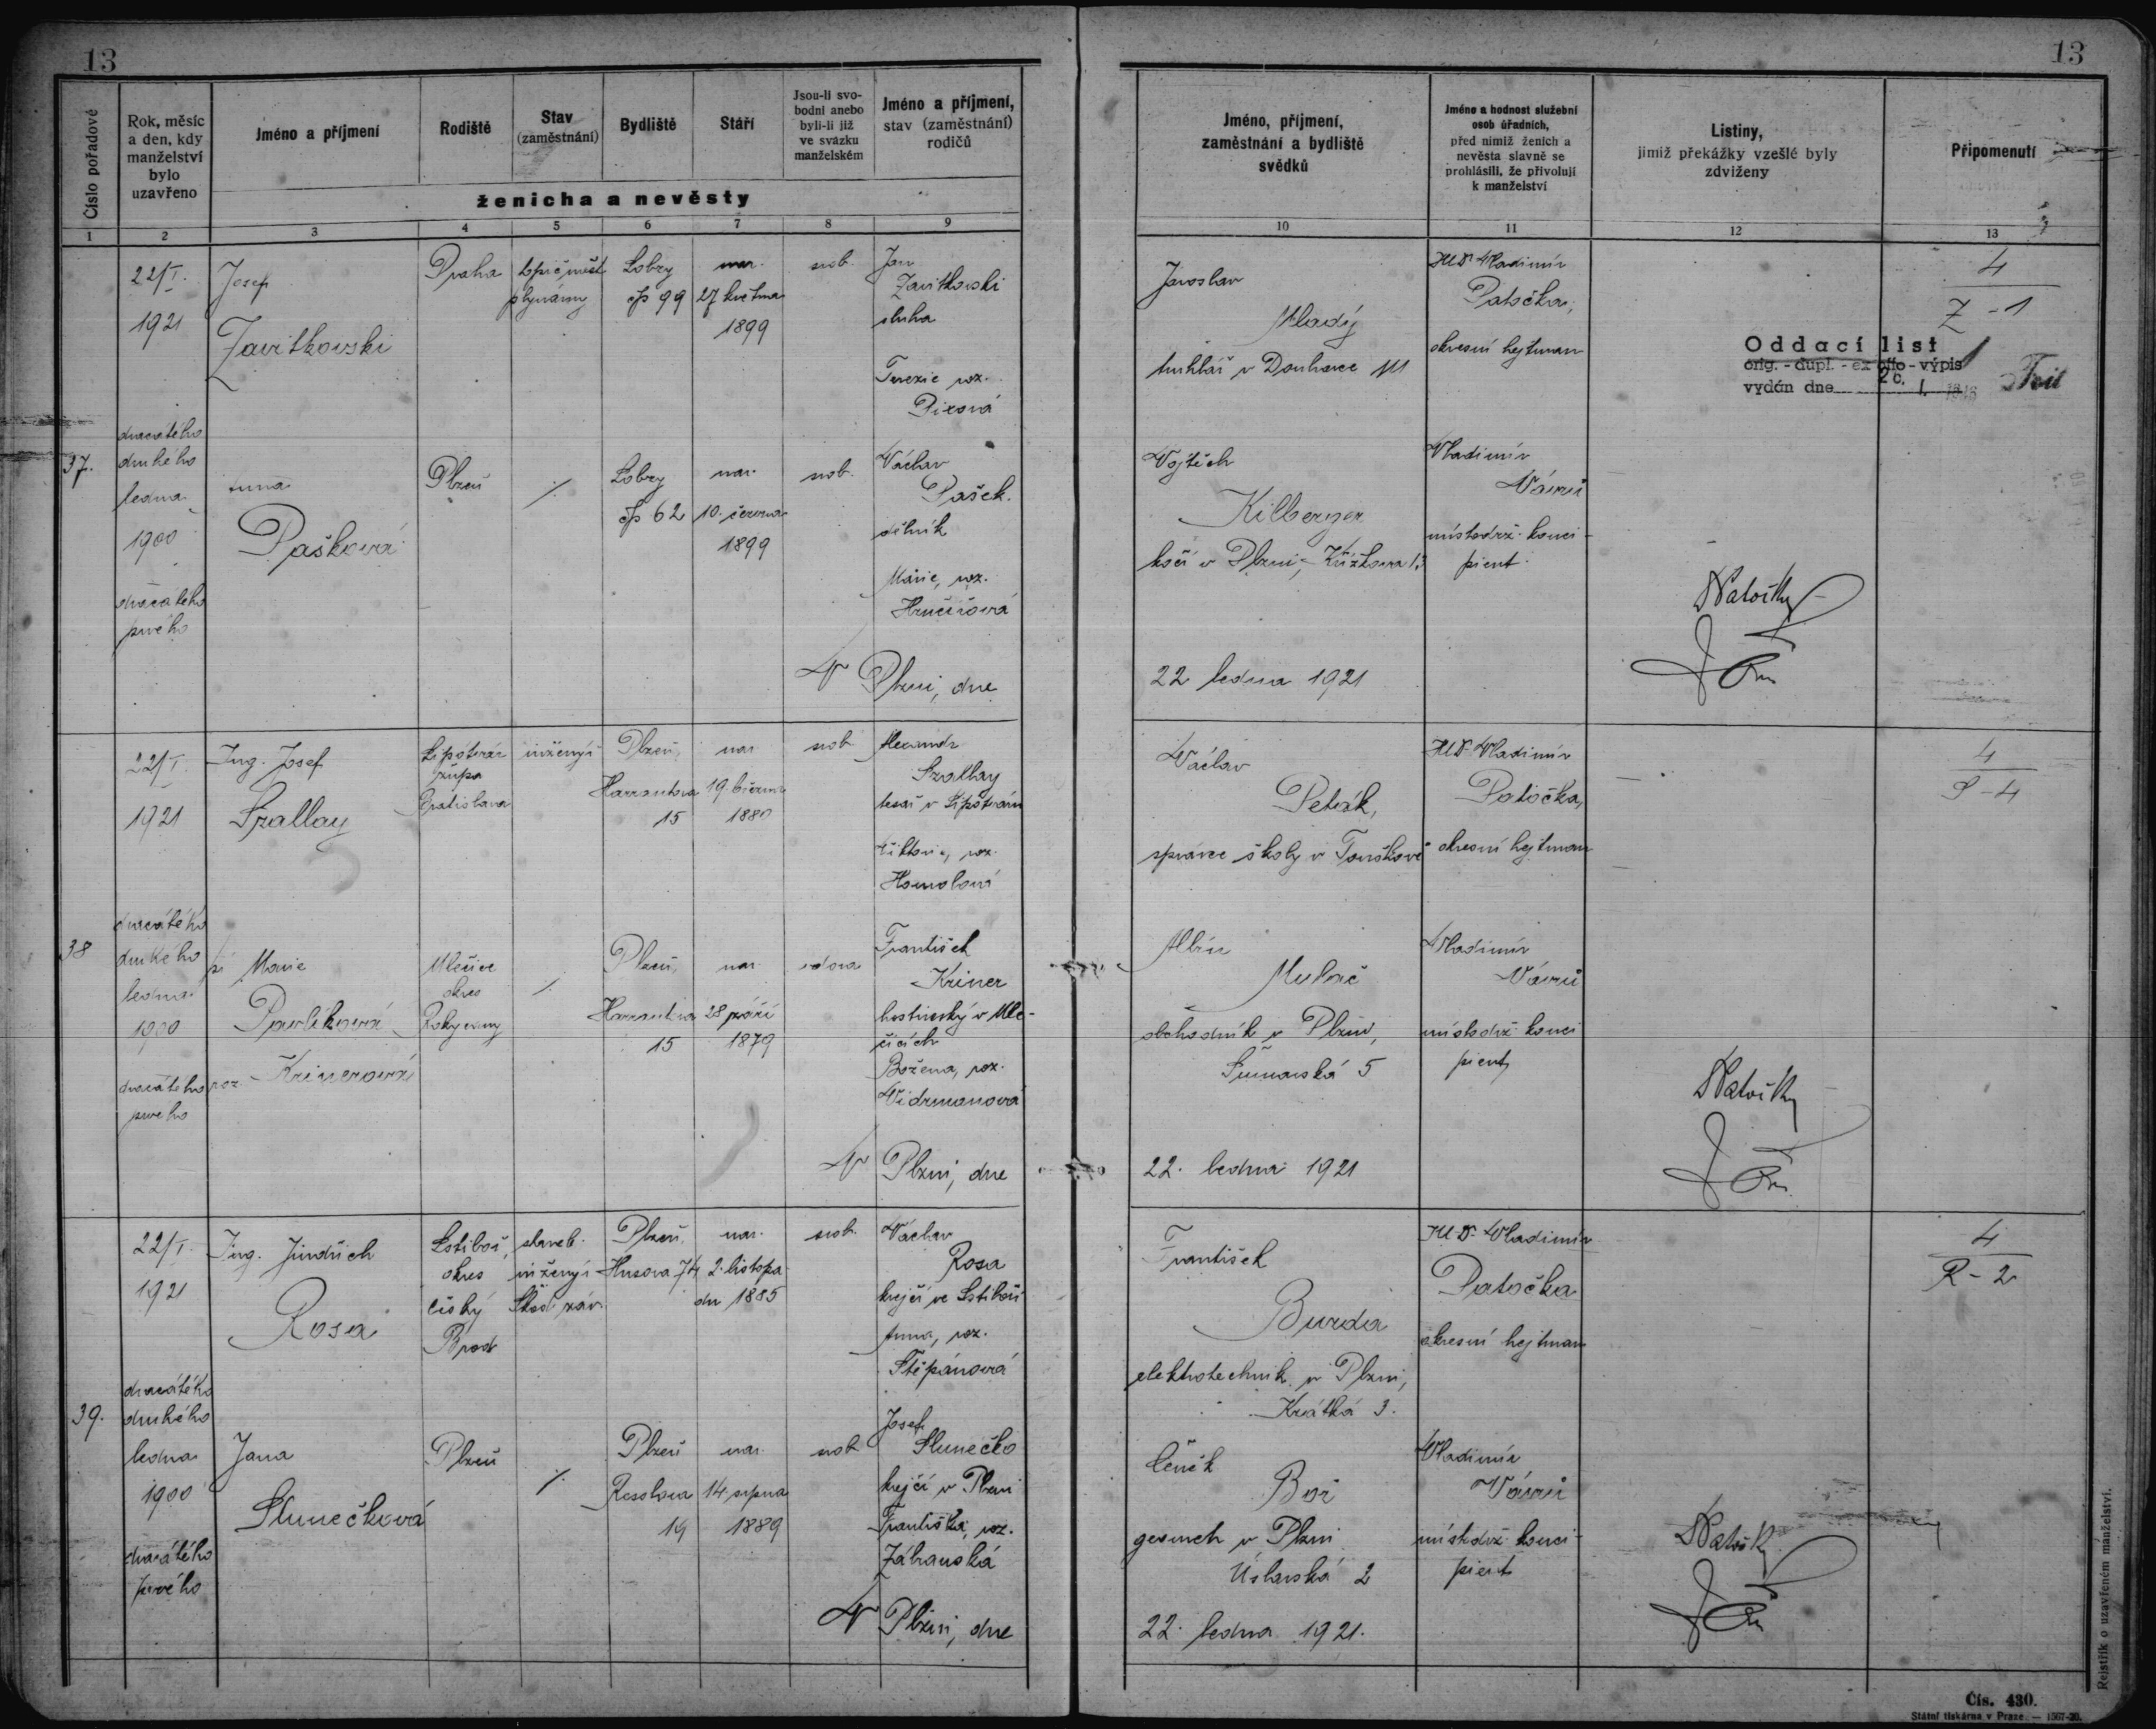 13
13
Číslo pořadové
Rok, měsíc a den, kdy manželství bylo uzavřeno
Jméno a příjmení
Rodiště
Stav (zaměstnání)
Bydliště
Stáří
Jsou-li svobodni anebo byli-li již ve svazku manželském
Jméno a příjmení, stav (zaměstnání) rodičů
ženicha a nevěsty
Jméno, příjmení, zaměstnání a bydliště svědků
Jméno a hodnost služební osob úřadních, před nimiž ženich a nevěsta slavně se prohlásili, že přivolují k manželství
Listiny, jimiž překážky vzešlé byly zdviženy
Připomenutí
1 2 3 4 5 6 7 8 9 10 11 12 13
37.
22/I.
1921
dvacátého
druhého
ledna
1900
dvacátého
prvého
Josef
Zavitkovski
Praha
topič měst.
plynárny
Lobzy
čp 99
nar.
27 května
1899
svob.
Jan
Zavitkovski
sluha
Terezie roz.
Pixová
Anna
Pašková
Plzeň
Lobzy
čp 62
nar.
10. června
1899
svob.
Václav
Pašek
dělník
Marie, roz.
V Plzni, dne
Jaroslav
Mladý
truhlář v Doubravce
Vojtěch
Kilberger
kočí v Plzni, Křížkova
22 ledna 1921
JUDr Vladimír
Patočka,
okresní hejtman
Vladimír
Vávrů
místodrž. konci-
pient.
4
Z-1
Oddací list
orig. - dupl. - ex offo - výpis
vydán dne
38
22/I.
1921
dvacátého
druhého
ledna
1900
dvacátého
prvého
Ing. Josef
Szallay
Lipótvár
župa
Bratislava
inženýr
Plzeň,
Harantova
15
nar.
19. března
1880
svob.
Alexandr
Szallay
tesař v Lipótváru
Viktorie, roz.
Homolová
Marie
Pavlíková
roz. Krinerová
Mlečice
okres
Rokycany
Plzeň,
Harantova
15
nar.
28 září
1879
vdova
František
Kriner
hostinský v Mle-
čicích
Božena, roz.
Vidrmanová
V Plzni, dne
Václav
Peták,
správce školy v
Albín
Mulač
obchodník v Plzni,
Šumavská 5
22. ledna 1921
JUDr. Vladimír
Patočka,
okresní hejtman
Vladimír
Vávrů
místodrž. konci
pient
4
S-4
39.
22/I.
1921
dvacátého
druhého
ledna
1900
dvacátého
prvého
Ing. Jindřich
Rosa
Lstiboř,
okres
Český
Brod
staveb.
inženýr
Škod. záv.
Plzeň,
Husova 74
nar.
2. listopa
du 1885
svob.
Václav
Rosa
krejčí ve Lstiboři
Anna, roz.
Štěpánová
Jana
Slunečková
Plzeň
Plzeň
Resslova
14
nar.
14 srpna
1889
svob.
Josef
Slunečko
krejčí v Plzni
Františka, roz.
V Plzni, dne
František
Burda
elektrotechnik v Plzni,
Krátká 3.
Čeněk
v Plzni
Úslavská 2
22. ledna 1921.
JUDr. Vladimír
Patočka
okresní hejtman
Vladimír
Vávrů
místodrž. konci-
pient
4
R-2
Rejstřík o uzavřeném manželství.
Čís. 430.
Státní tiskárna v Praze. — 1567-20.